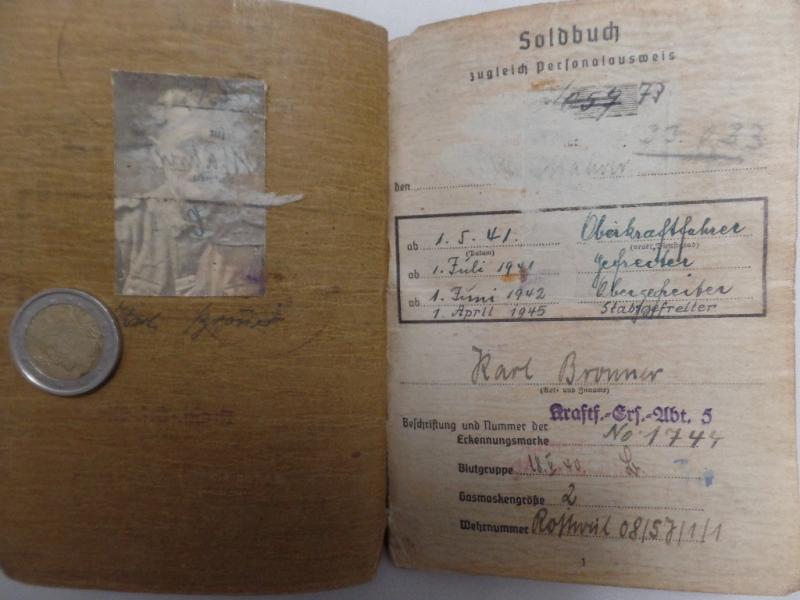 Karl Bronner
Soldbuch
zugleich Personalausweis
den
ab 1. 5. 41. Oberkraftfahrer
(Datum) (neuer Dienstgrad)
ab 1. Juli 1941 Gefreiter
ab 1. Juni 1942 Obergefreiter
1. April 1945 Stabsgefreiter
Karl Bronner
(Vor- und Zuname)
Kraftf.-Ers.-Abt. 5
Beschriftung und Nummer der
Erkennungsmarke No 1744
Blutgruppe
Gasmaskengröße 2
Wehrnummer Rottweil 08/57/1/1
1